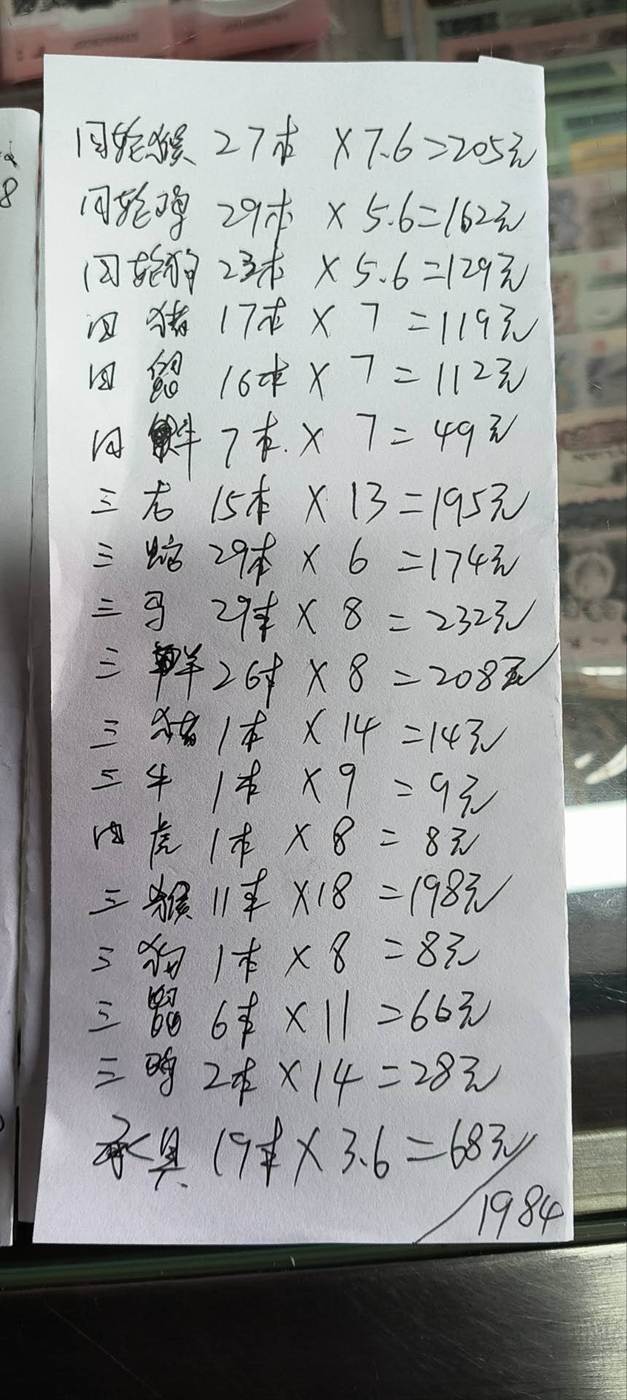 四轮猴 27本 ×7.6=205元
四轮鸡 29本 ×5.6=162元
四轮狗 23本 ×5.6=129元
四 猪 17本 × 7 =119元
四 鼠 16本 × 7 =112元
四 牛 7本 × 7 = 49元
三 龙 15本 × 13 =195元
三 蛇 29本 × 6 =174元
三 马 29本 × 8 = 232元
三 羊 26本 × 8 =208元
三 猪 1本 × 14 =14元
三 牛 1本 × 9 = 9元
四 虎 1本 × 8 = 8元
三 猴 11本 ×18 =198元
三 狗 1本 × 8 =8元
三 鼠 6本 ×11 =66元
三 鸡 2本 ×14 =28元
19本 × 3.6 =68元
1984
8